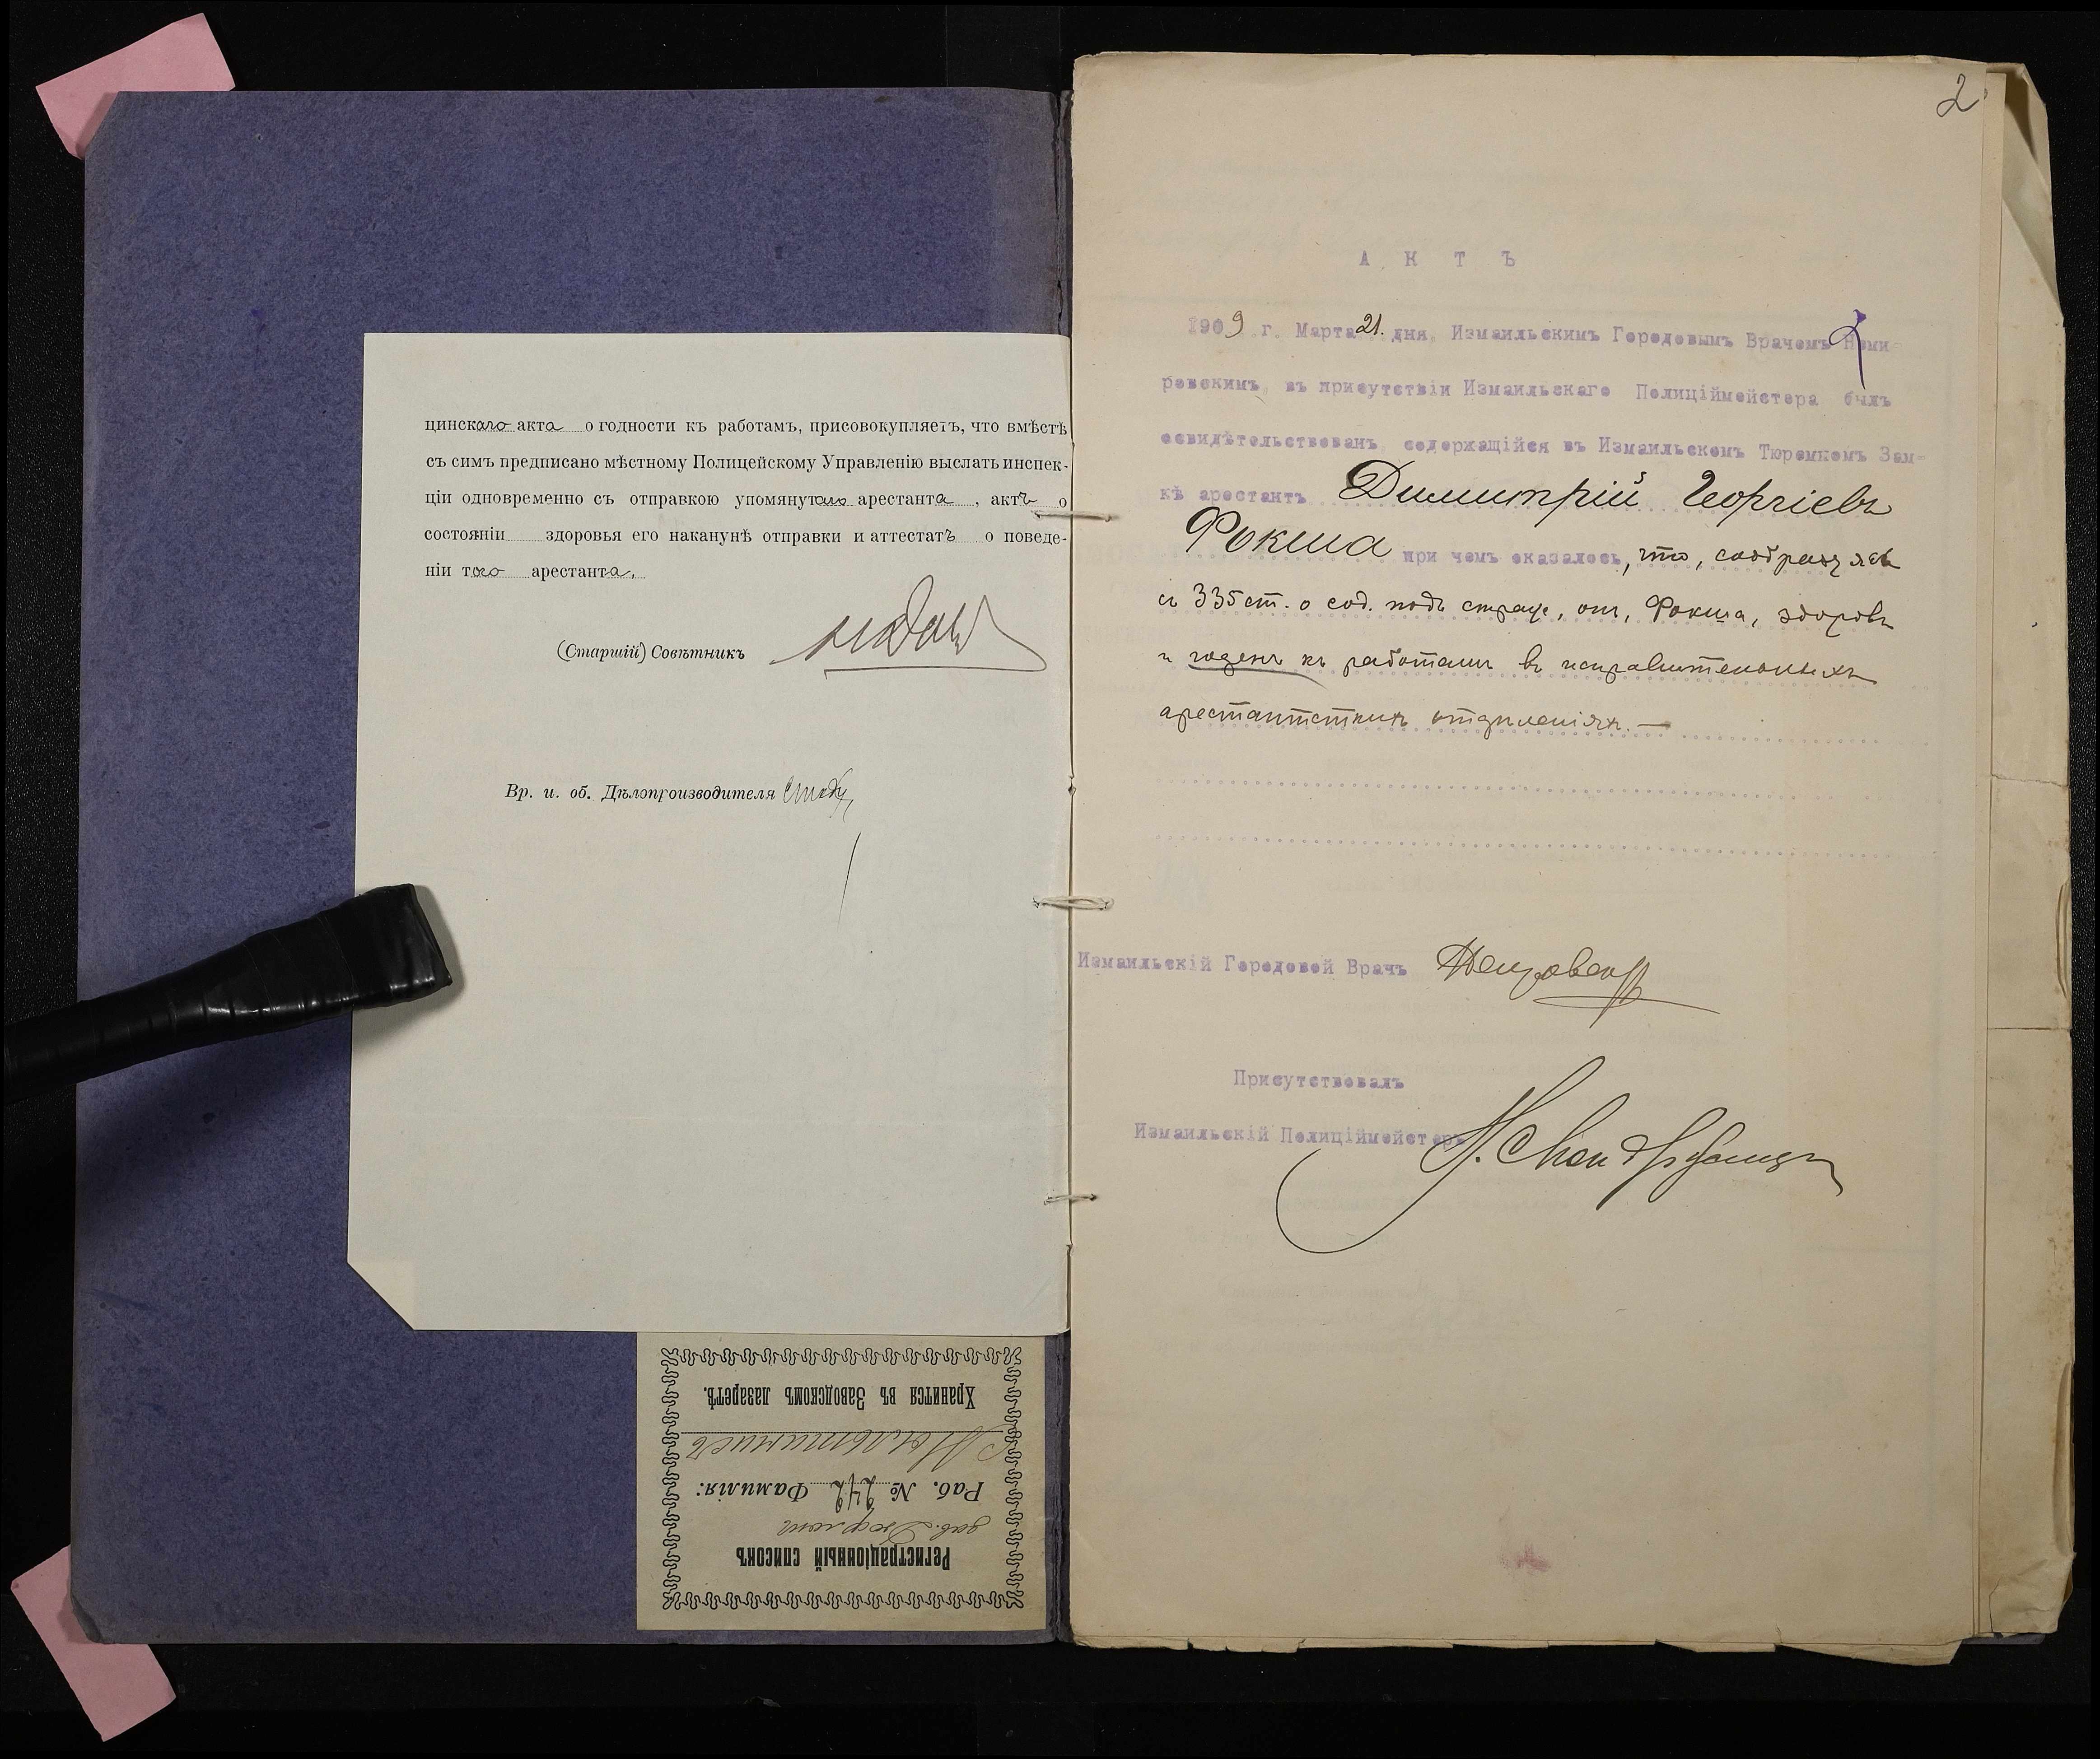 цинскаго акта о годности къ работамъ, присовокупляетъ, что вмѣстѣ
съ симъ предписано мѣстному Полицейскому Управленію выслать инспек-
ціи одновременно съ отправкою упомянутаго арестанта, актъ о
состояніи здоровья его наканунѣ отправки и аттестатъ о поведе-
ніи того арестанта.
(Старшій) Совѣтникъ
Вр. и. об. Дѣлопроизводителя
Регистраціонный списокъ
Раб. № 242 Фамилія:
Хранится въ Заводскомъ лазаретѣ.
2
АКТЪ
1909 г. Марта 21. дня. Измаильскимъ Городовымъ Врачемъ Неми-
ровскимъ, въ присутствіи Измаильскаго Полиціймейстера былъ
освидѣтельствованъ содержащійся въ Измаильскомъ Тюремномъ Зам-
кѣ арестантъ Димитрій Георгіевъ
Фокша при чемъ оказалось, что, сообразуясь
съ 335 ст. о сод. подъ стражу, онъ, Фокша, здоровъ
и годенъ къ работамъ въ исправительныхъ
арестантскихъ отдѣленіяхъ.—
Измаильскій Городовой Врачъ
Присутствовалъ
Измаильскій Полиціймейстеръ